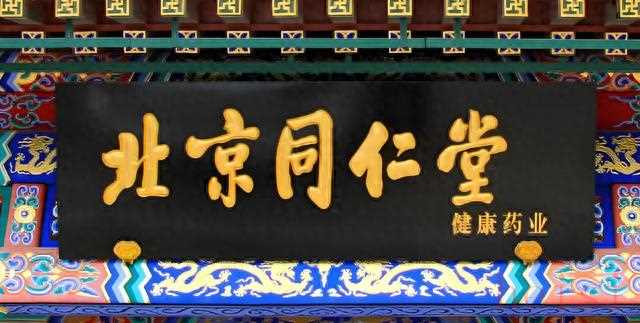 北京同仁堂
健康药业